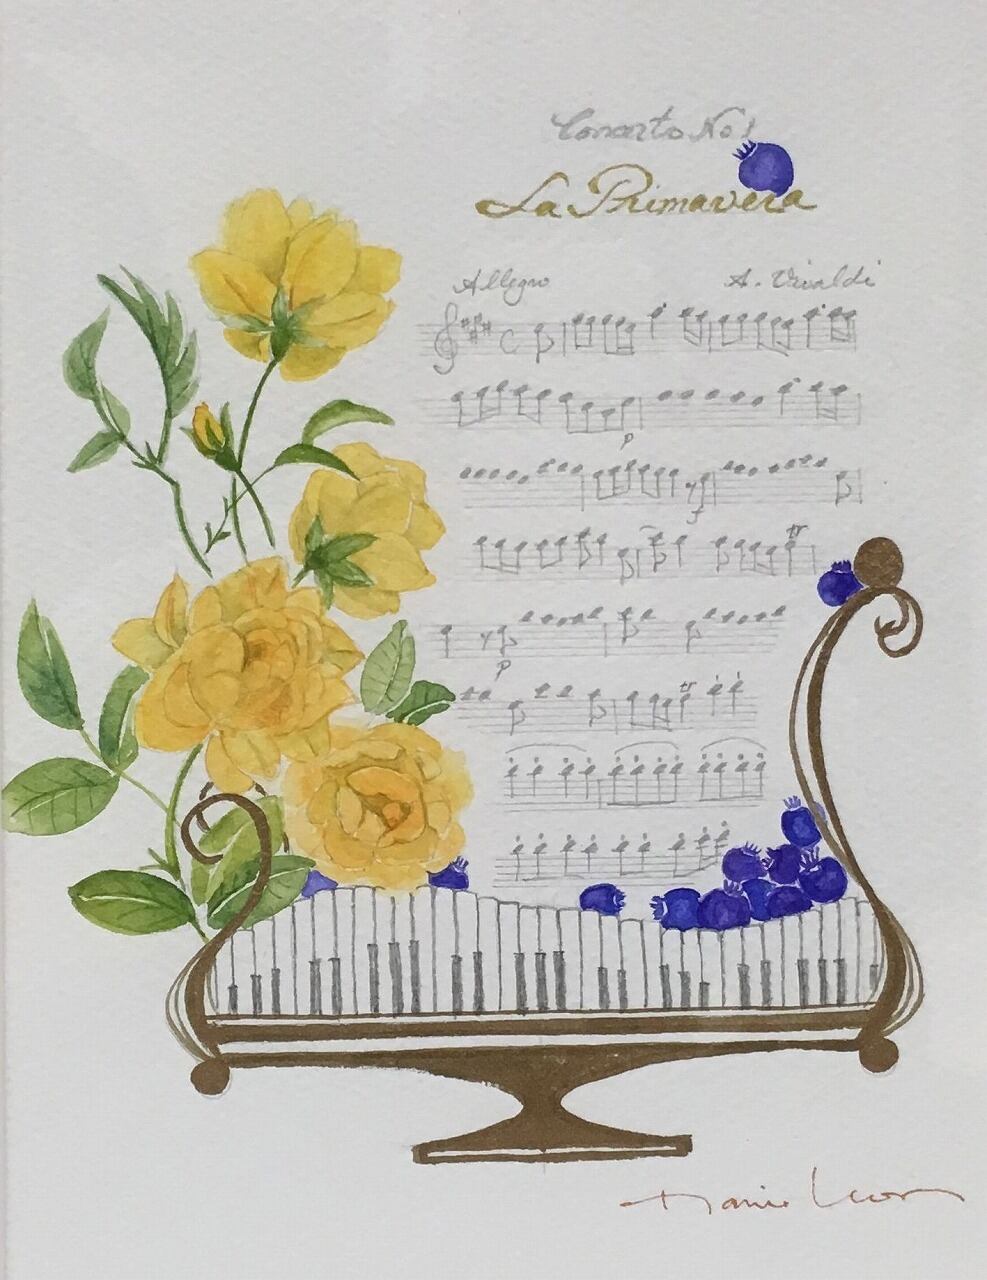 Concerto No 1
La Primavera
Allegro
A. Vivaldi
p
f
p